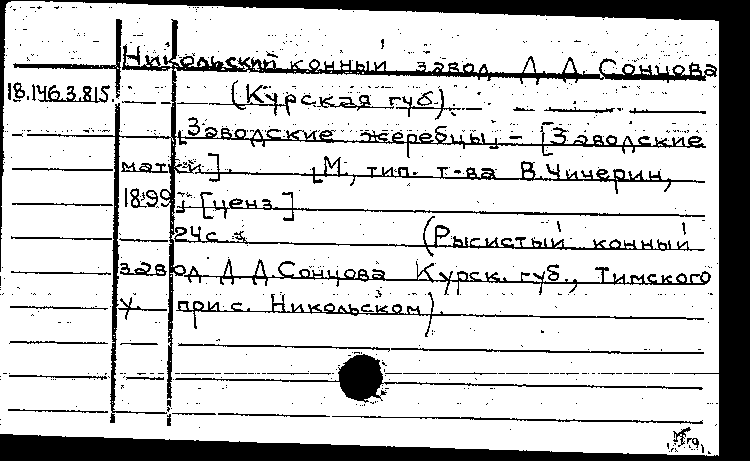 Никольский конный завод Д. Д. Сонцова
18.146.3.815.
(Курская губ).
[Заводские жеребцы] - [Заводские
матки]. [М, тип. т-ва В.Чичерин,
1899] [ценз.]
24с
(Рысистый конный
завод Д Д Сонцова Курск. губ., Тимского
у. при с. Никольском).